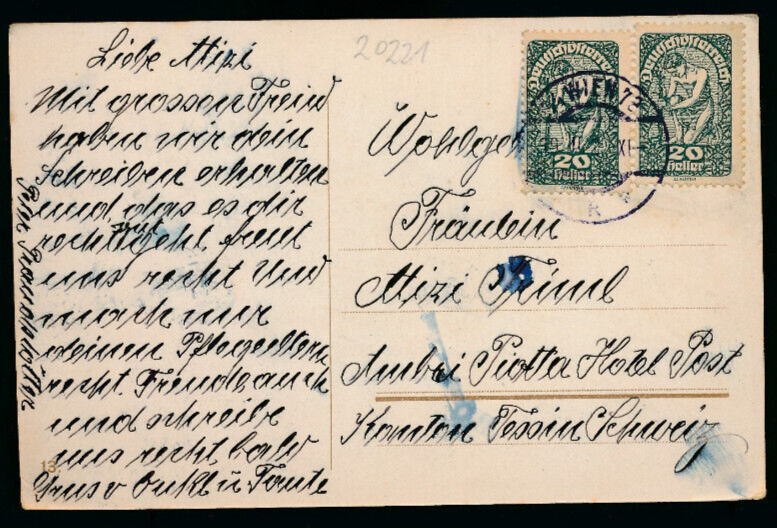 Liebe Mizi
Mit grossen Freud
haben wir dein
schreiben erhalten
und das es dir
recht gut geht freut
uns recht Und
mach nur
deinen Pflegeeltern
recht Freude auch
und schreibe
uns recht bald
Gruss v Onkl u Tante
20221
Deutschösterreich
20
Heller
Deutschösterreich
20
Heller
WIEN 72
XI
Wohlgeb
Fräulein
Mizi Triml
Ambri Piotta Hotel Post
Kanton Tessin Schweiz
13